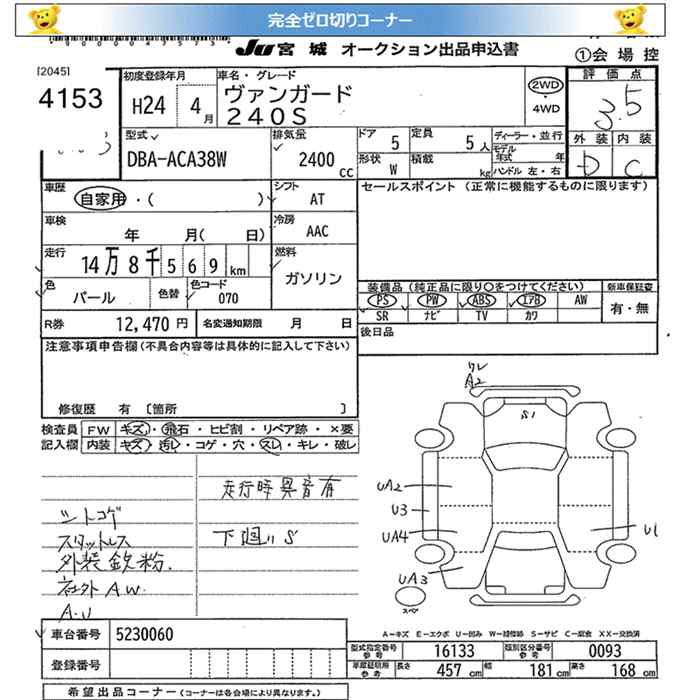 完全ゼロ切りコーナー
JU 宮城 オークション出品申込書
①会場控
[2045]
4153
初度登録年月
H24 4月
車名・グレード
ヴァンガード
240S
2WD
・
4WD
評価点
3.5
外装 内装
D C
型式
DBA-ACA38W
排気量
2400 cc
ドア 5
定員 5人
形状 W
積載 kg
ディーラー・並行
モデル年式 年
ハンドル 左・右
車歴
自家用・( )
シフト AT
セールスポイント (正常に機能するものに限ります)
車検
年 月( 日)
冷房 AAC
走行
14万8千569km
燃料
ガソリン
色
パール
色替
色コード
070
装備品 (純正品に限り○をつけてください)
新車保証書
PS PW ABS エアB AW
SR ナビ TV カワ
有・無
R券 12,470円
名変通知期限 月 日
後日品
注意事項申告欄(不具合内容等は具体的に記入して下さい)
修復歴 有 〔箇所 〕
検査員 FW キズ・飛石・ヒビ割・リペア跡・×要
記入欄 内装 キズ・汚レ・コゲ・穴・スレ・キレ・破レ
走行時異音有
シートコゲ
スタットレス
下廻りS
外装鉄粉
社外AW.
A.U
ワレ
A2
S1
UA2
U3
UA4
UA3
U1
スペア
A-キズ E-エクボ U-凹み W-補修跡 S-サビ C-腐食 XX-交換済
車台番号 5230060
登録番号
型式指定番号 参考 16133
類別区分番号 参考 0093
車庫証明用 参考 長さ 457 cm 幅 181 cm 高さ 168 cm
希望出品コーナー (コーナーは各会場により異なります。)